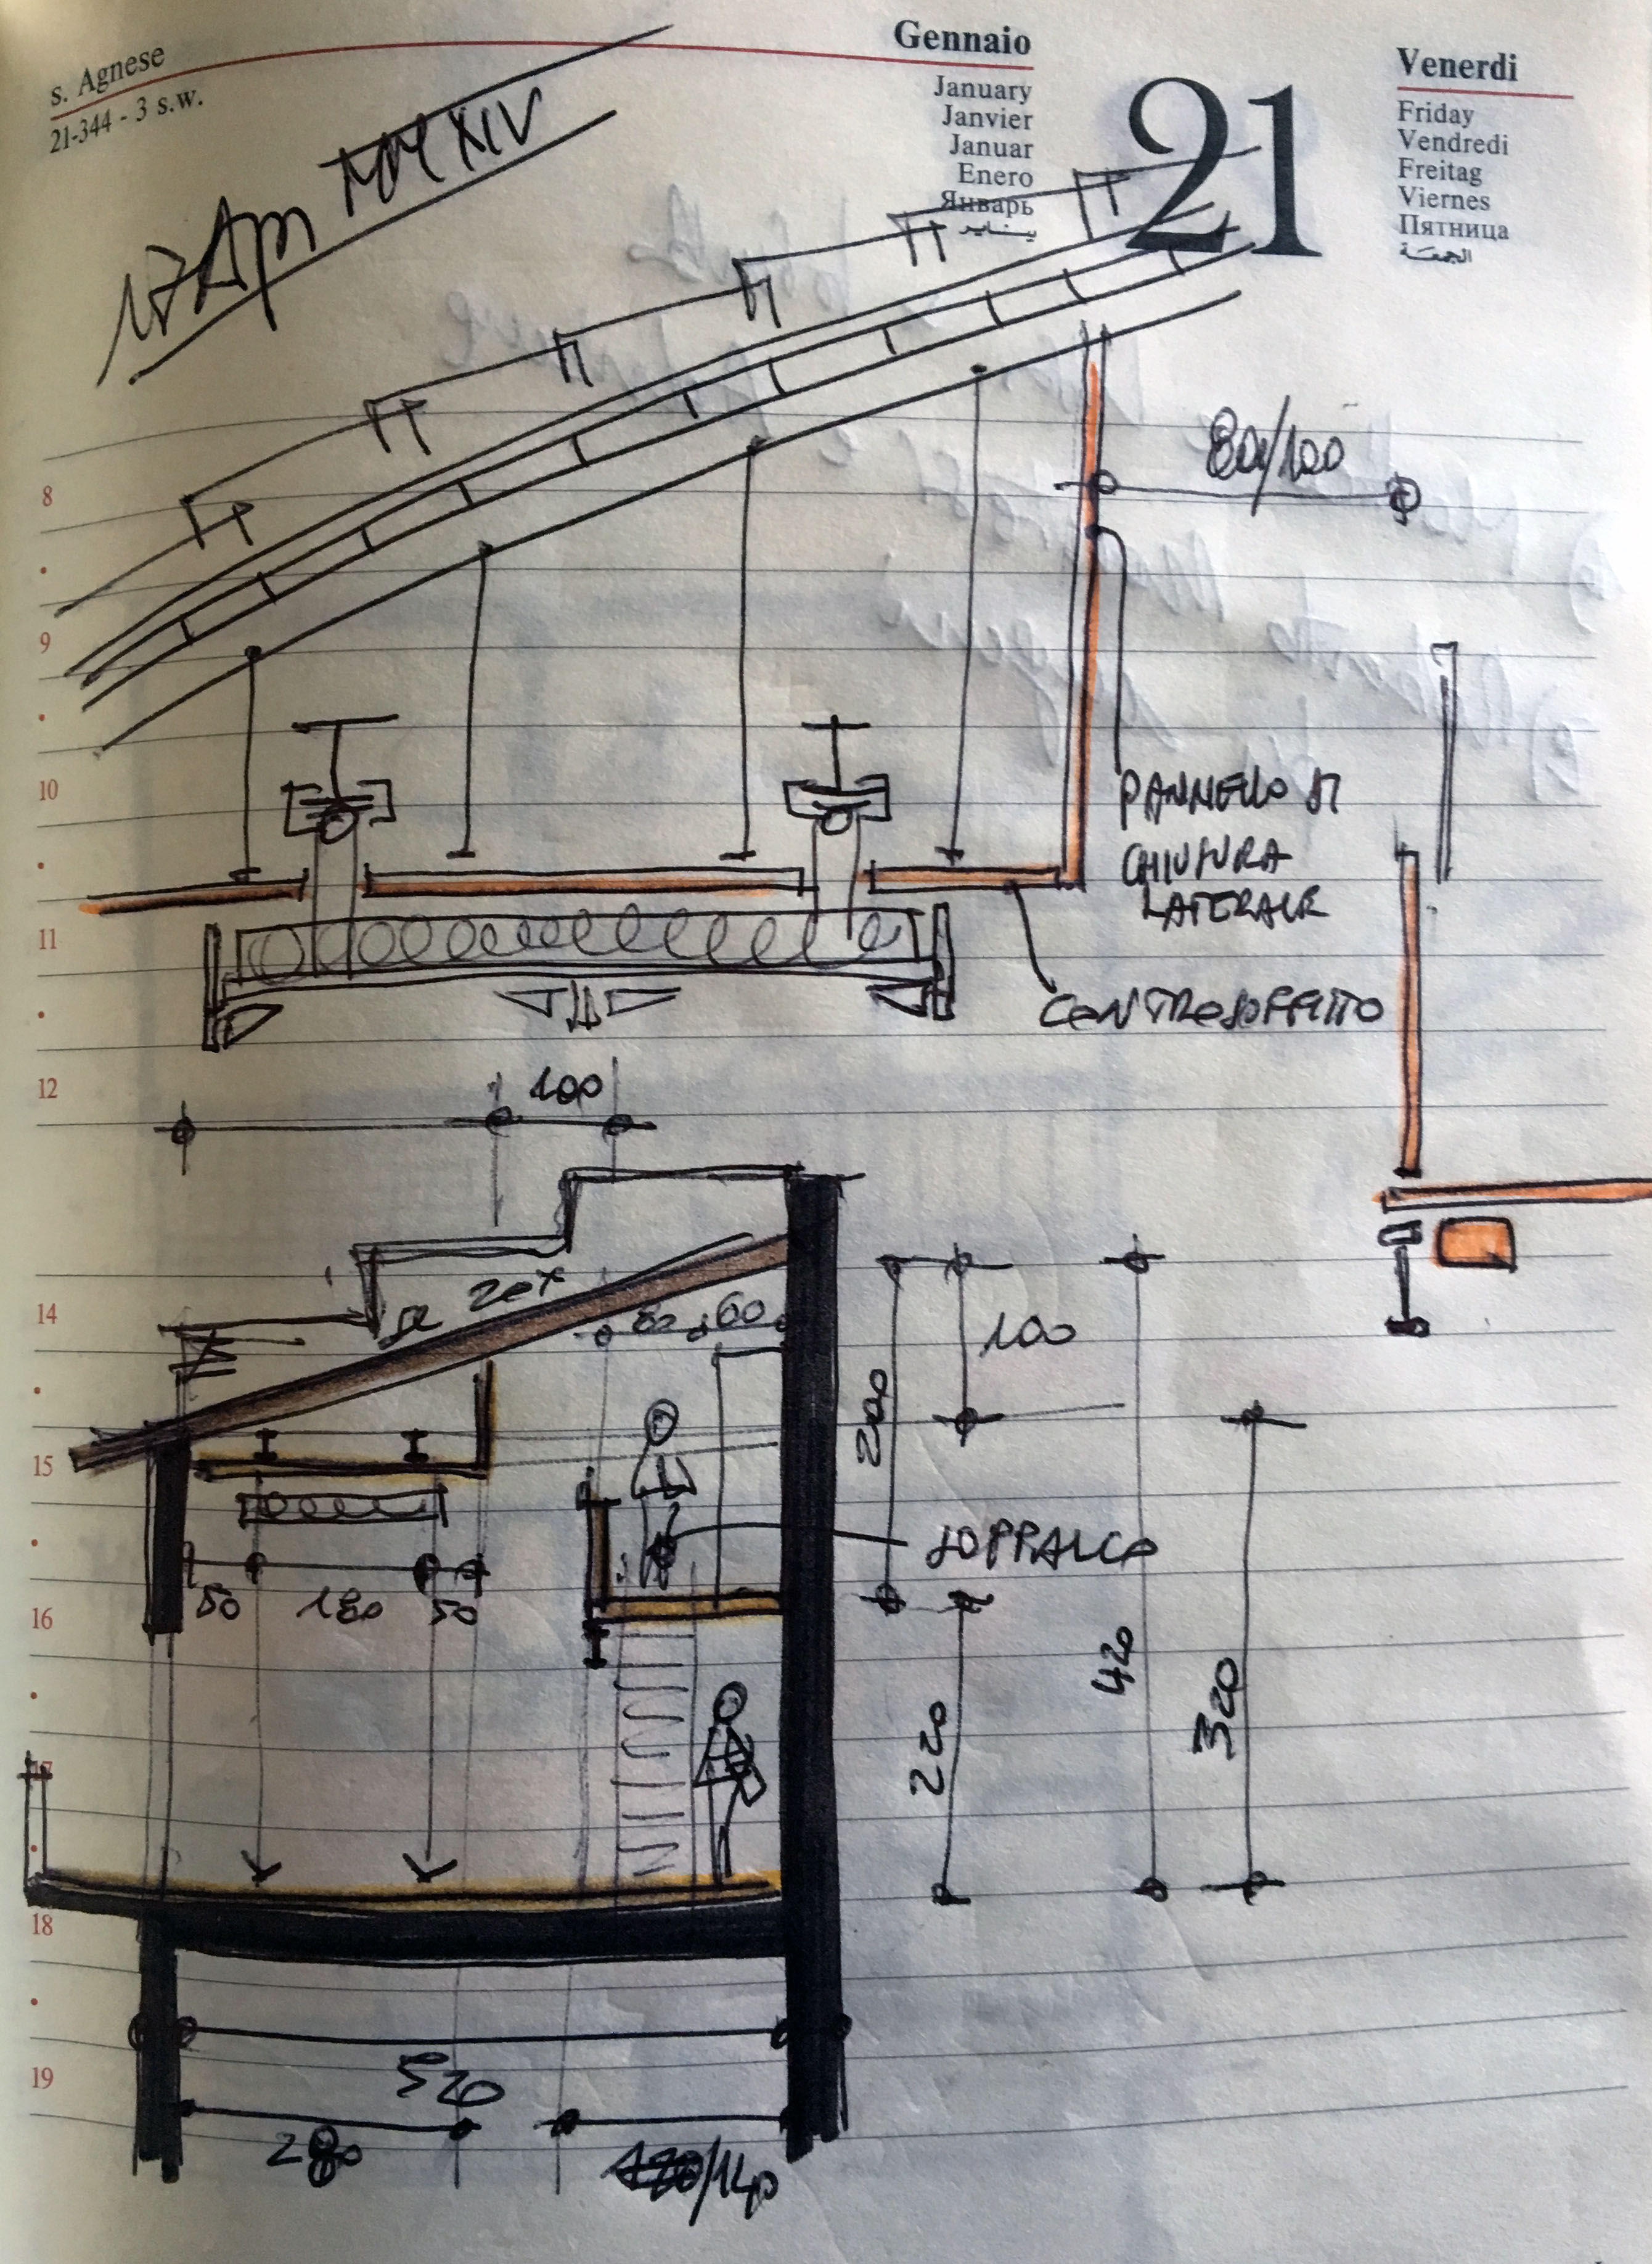 s. Agnese
21-344 - 3 s.w.
Gennaio
January
Janvier
Januar
Enero
Январь
يناير
21
Venerdi
Friday
Vendredi
Freitag
Viernes
Пятница
الجمعة
17 Apr MMXIV
8
80/100
9
10
PANNELLO DI
CHIUSURA
LATERALE
11
CONTROSOFFITTO
12
100
14
20%
80 60
100
200
15
SOPPALCO
50 180 50
16
420
320
220
17
18
520
19
280
120/140